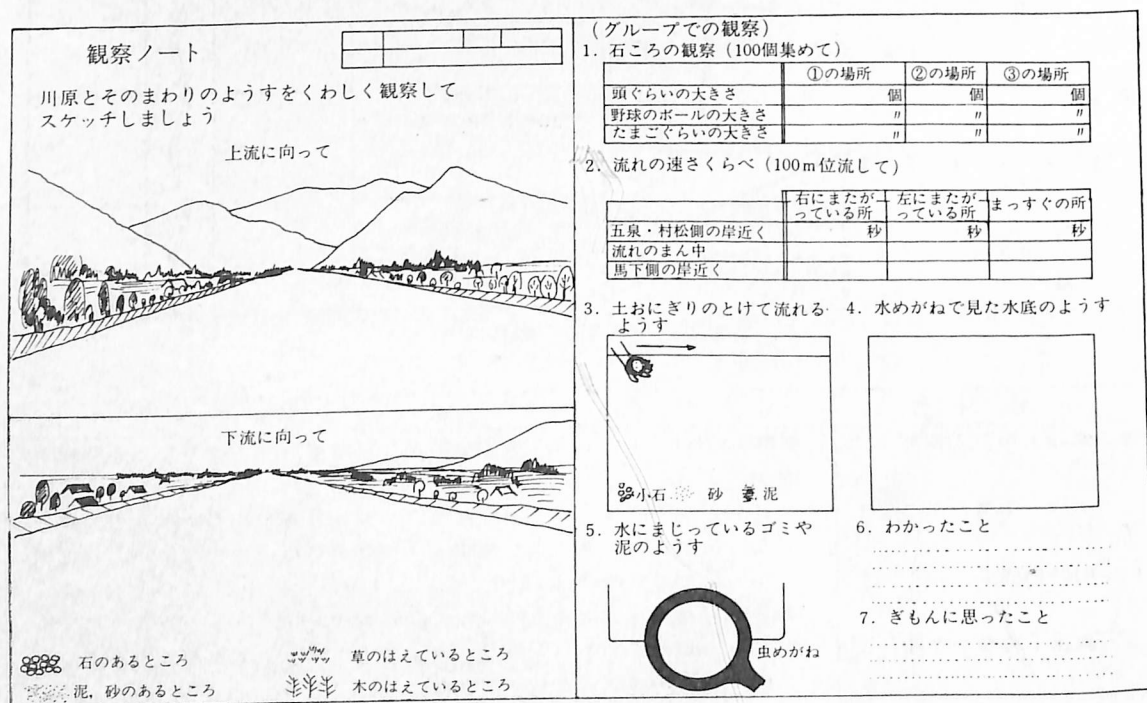 観察ノート
川原とそのまわりのようすをくわしく観察して
スケッチしましょう
上流に向って
下流に向って
石のあるところ
草のはえているところ
泥，砂のあるところ
木のはえているところ
(グループでの観察)
1. 石ころの観察（100個集めて）
①の場所 ②の場所 ③の場所
頭ぐらいの大きさ 個 個 個
野球のボールの大きさ 〃 〃 〃
たまごぐらいの大きさ 〃 〃 〃
2. 流れの速さくらべ（100m位流して）
右にまたが
っている所
左にまたが
っている所
まっすぐの所
五泉・村松側の岸近く 秒 秒 秒
流れのまん中
馬下側の岸近く
3. 土おにぎりのとけて流れる
ようす
小石 砂 泥
4. 水めがねで見た水底のようす
5. 水にまじっているゴミや
泥のようす
虫めがね
6. わかったこと
7. ぎもんに思ったこと